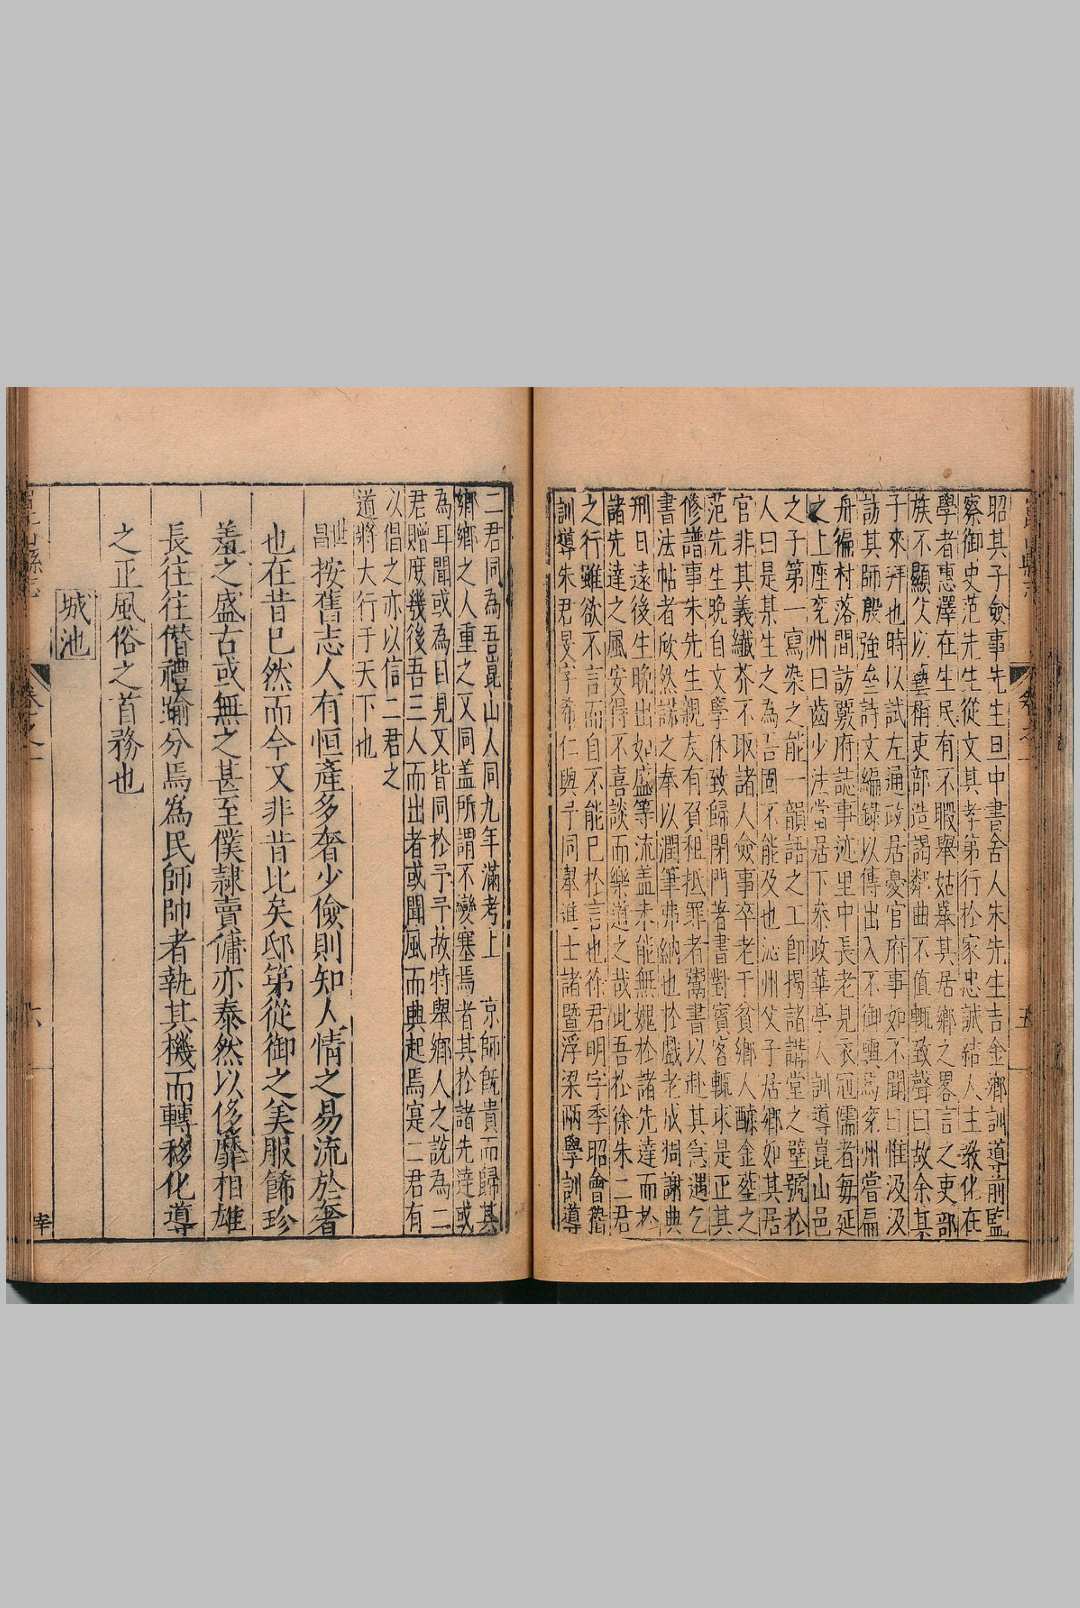 昭其子僉事先生旦中書舍人朱先生吉金鄉訓導前監
察御史范先生從文其孝第行於家忠誠結人主教化在
學者惠澤在生民有不暇舉姑舉其居鄉之畧言之吏部
族不顯父以藝稍吏部造謁鄰曲不值輒致聲曰故余某
子來拜也時以試左通政居憂官府事如不聞日惟汲汲
訪其師殷強垒詩文編錄以傳出入不御輿馬兖州嘗扁
舟徧村落間訪覈府誌事迹里中長老見衣冠儒者每延
之上座兖州曰齒少法當居下叅政華亭人訓導崑山邑
之子第一寫染之能一韻語之工師揭諸講堂之壁號於
人曰是某生之為吾固不能及也沁州父子居鄉如其居
官非其義纖芥不取諸人僉事卒老干貧鄉人醵金塟之
范先生晚自文學休致歸閉門著書對賓客輒衣是正其
修譜事朱先生親友有負租抵罪者鬻書以赴其急遇乞
書法帖者欣然諾之奉以潤筆弗納也於戲老成凋謝典
刑日遠後生晚出如盛等流盖未能無媿於諸先達而於
諸先達之風安得不喜談而樂道之哉此吾於徐朱二君
之行雖欲不言而自不能已於言也徐君明字季昭會稽
訓導朱君旻字希仁與予同舉進士諸暨浮梁兩學訓導
二君同為吾崑山人同九年滿考上　京師既貴而歸其
鄉鄉之人重之又同盖所謂不變塞焉者其於諸先達或
為耳聞或為目見又皆同於予予故特舉鄉人之說為二
君贈庶幾後吾三人而出者或聞風而興起焉寔二君有
以倡之亦以信二君之
道將大行于天下也
世昌按舊志人有恒產多奢少儉則知人情之易流於奢
也在昔已然而今又非昔比矣邸第從御之美服餙珍
羞之盛古或無之甚至僕隷賣傭亦泰然以侈靡相雄
長往往僭禮踰分焉為民師帥者執其機而轉移化導
之正風俗之首務也
城池